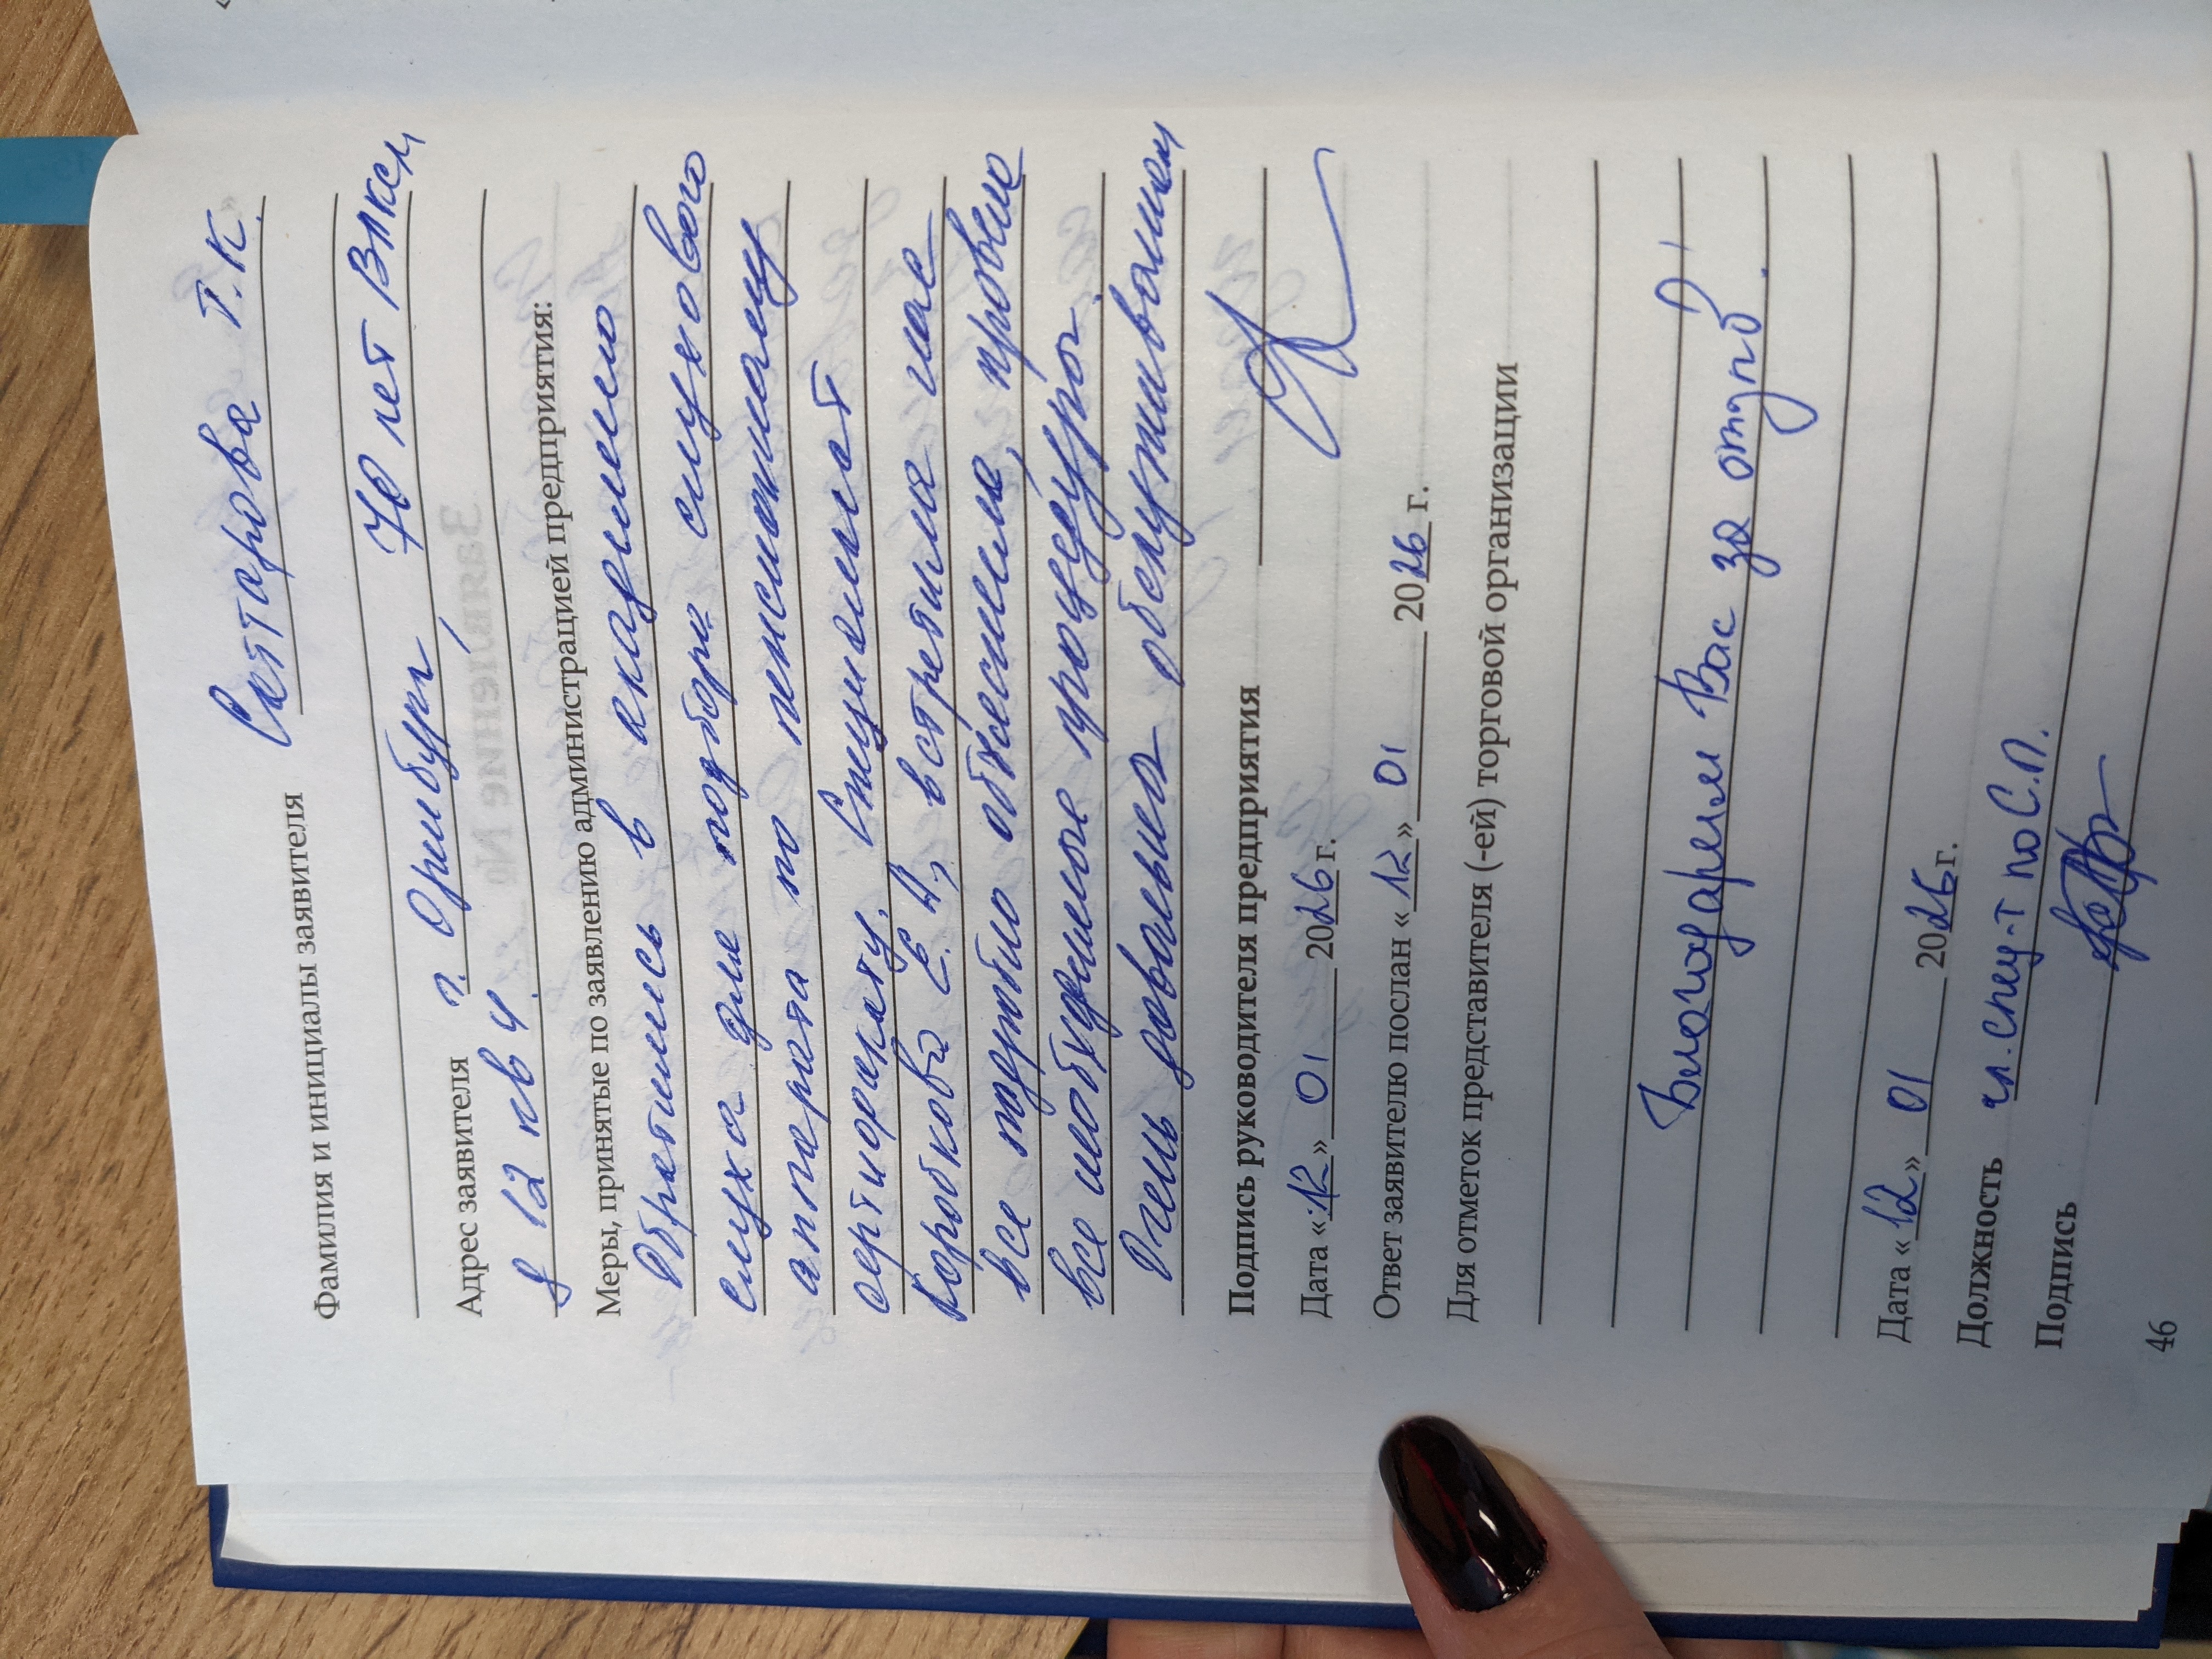 Фамилия и инициалы заявителя Саттарова Т.К.
Адрес заявителя г. Оренбург, 70 лет ВЛКСМ
д 12 кв 4.
Меры, принятые по заявлению администрацией предприятия:
Обратились в академию
слуха для подбора слухового
аппарата по електронному
сертификату. Специалист
Коробкова Е. А, встретила нас
все подробно объяснила, провела
все необходимые процедуры.
Очень довольна обслуживанием
Подпись руководителя предприятия
Дата «12» 01 2026 г.
Ответ заявителю послан «12» 01 2026 г.
Для отметок представителя (-ей) торговой организации
Благодарим Вас за отзыв!
Дата «12» 01 2026 г.
Должность гл. спец-т по С.П.
Подпись
46